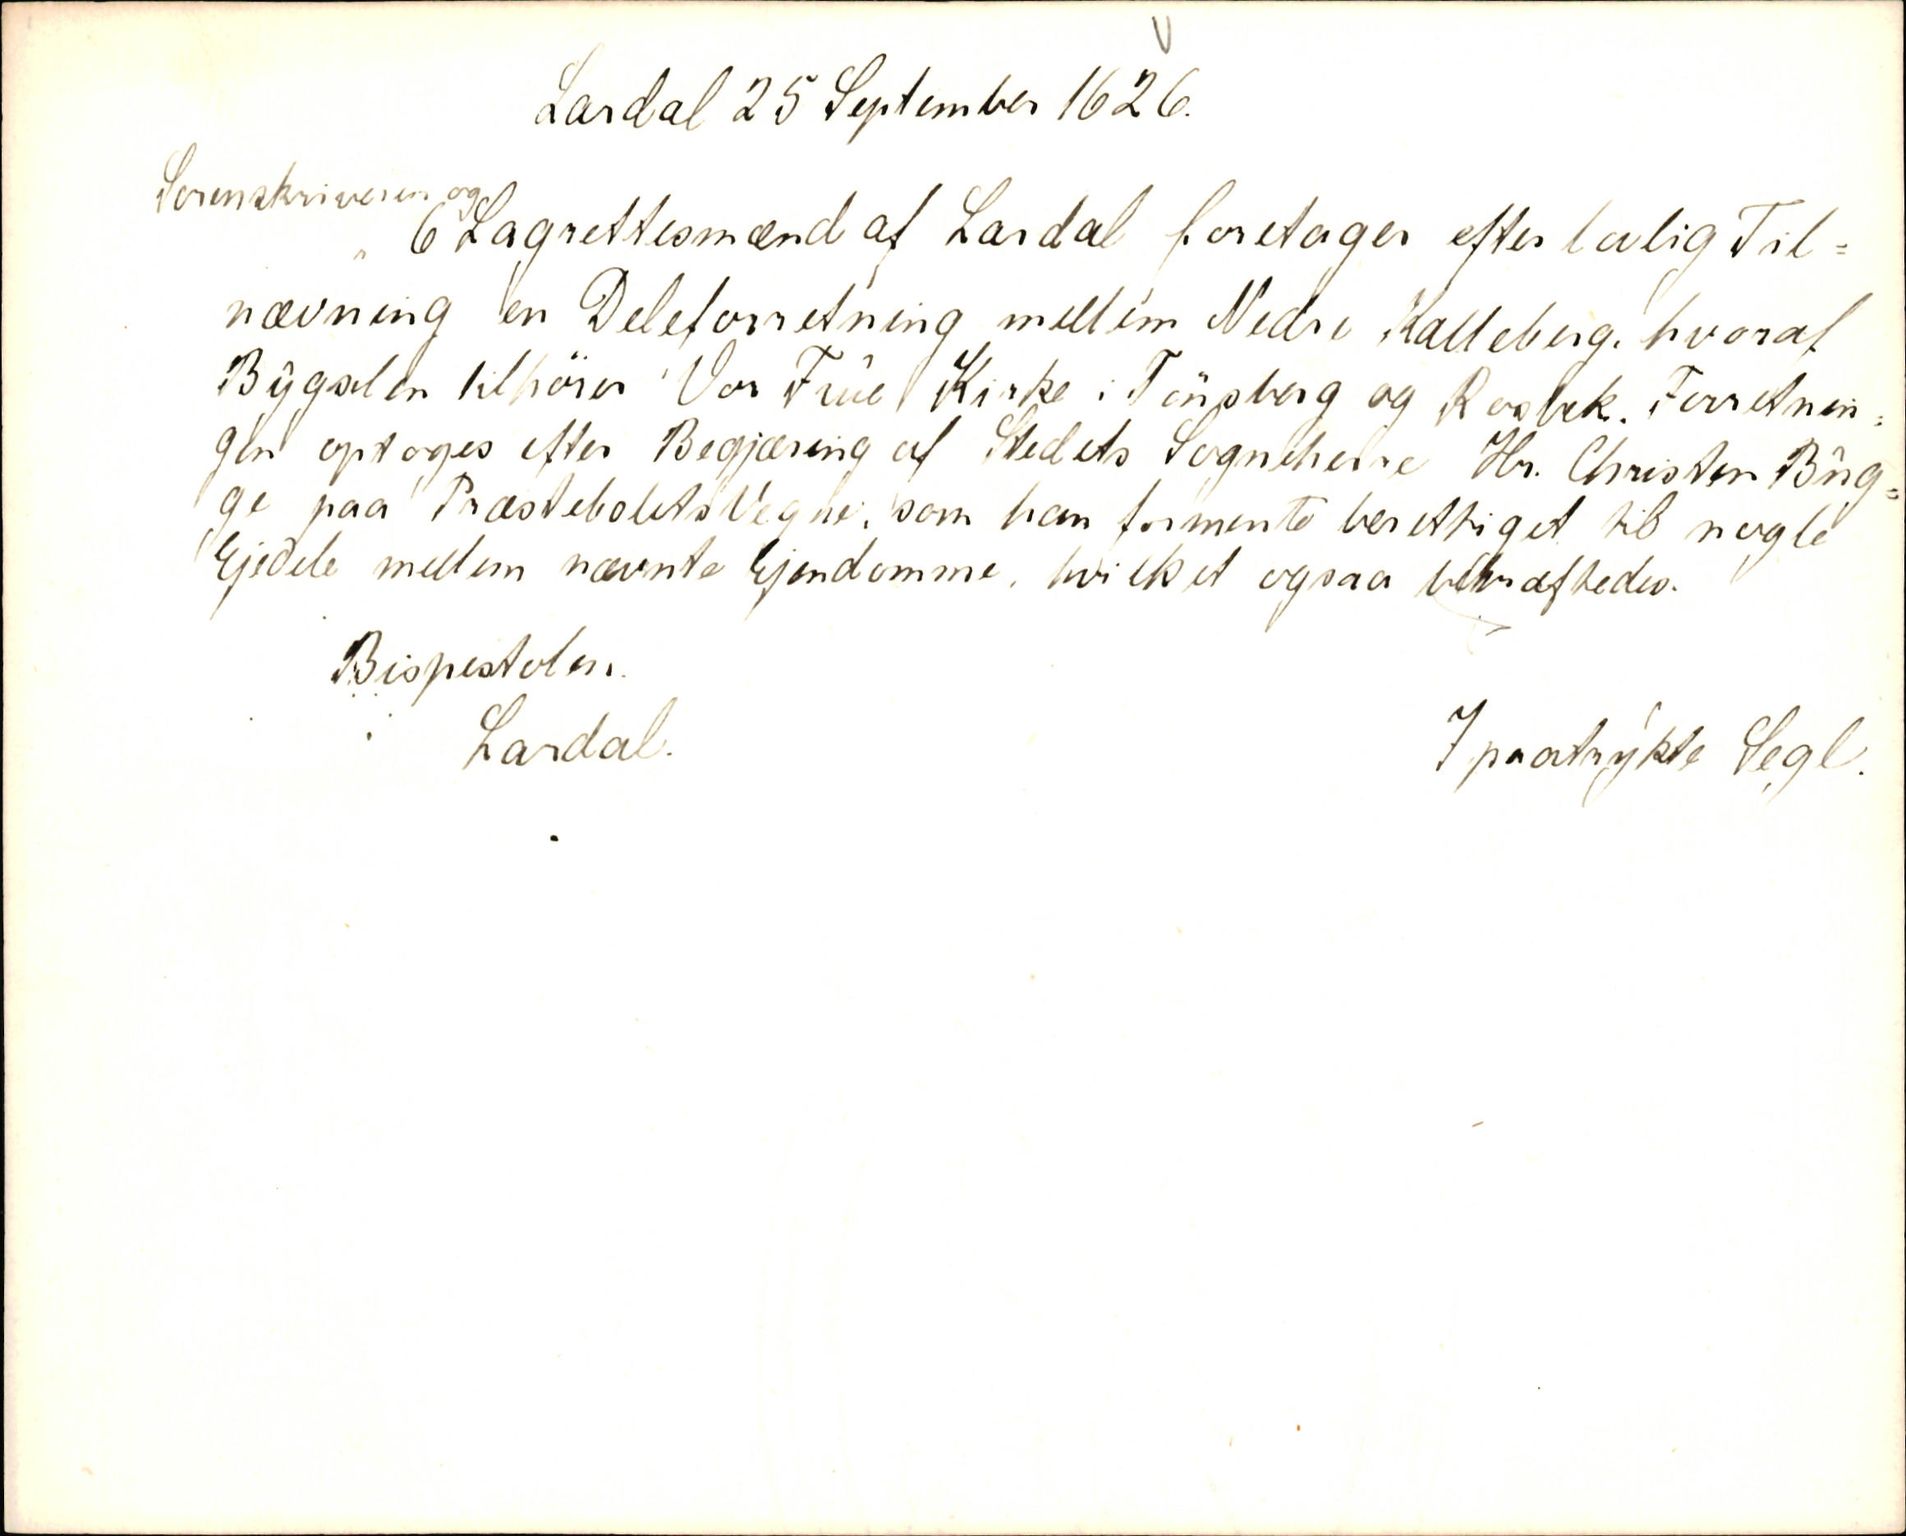 Lardal 25 September 1626.
Sorenskriveren og
6 Lagrettesmænd af Lardal foretager efter lovlig Til=
nævning en Deleforretning mellem Nedre Kalleberg, hvoraf
Bygselen tilhører Vor Frue Kirke i Tönsberg og Rosbek. Forretnin=
gen optoges efter Begjæring af Stedets Sogneherre Hr. Christen Bug=
ge paa Præstebolets Vegne, som han formente berettiget til nogle
Ejedele mellem nævnte Ejendomme, hvilket ogsaa bekræftedes.
Bispestolen.
Lardal.
7 paatrykte Segl.